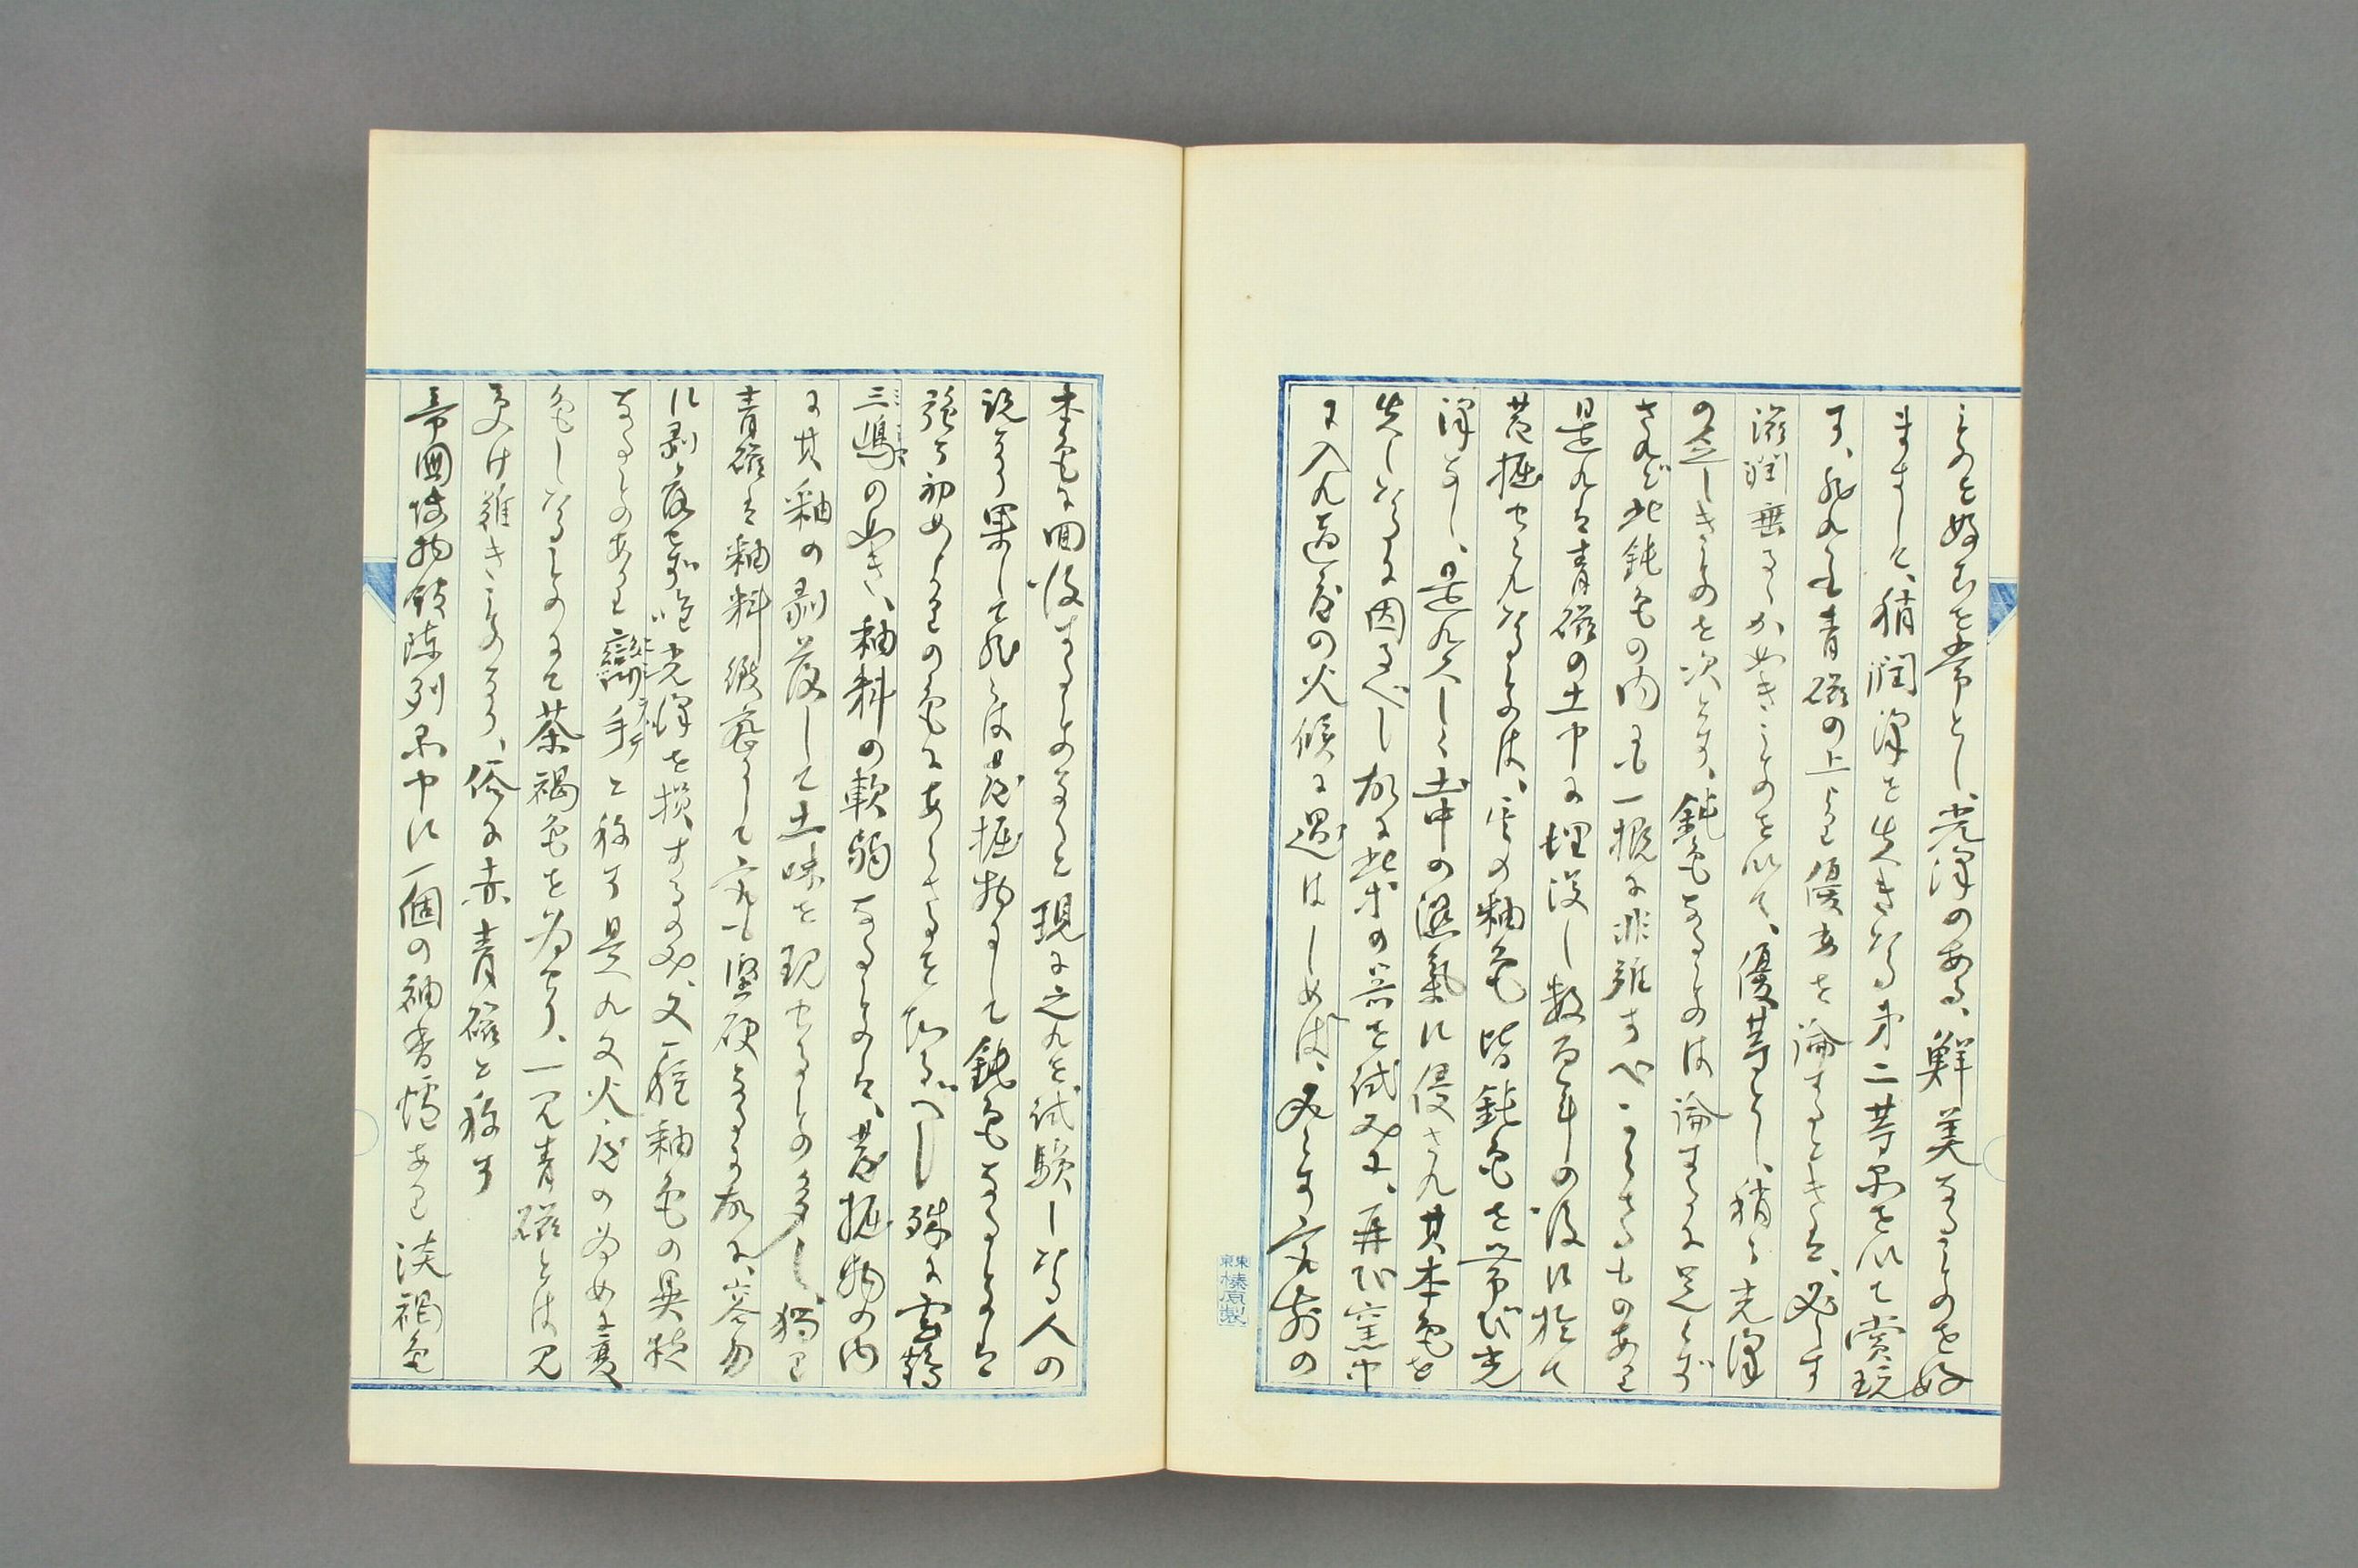 ものを好むを常とし、光澤のある、鮮美なるものを好
まずして、稍潤澤を失へきたる第二等品を以て賞玩
す、然れども青磁の上より優劣を論ずるときは、必らず
滋潤垂るゝが如きものを以て、優等とし、稍々光澤
の乏しきものを次とす、鈍色なるものは論ずるに足らず
されど此鈍色の内にも一概に非難すべからざるものあり
是れは青磁の土中に埋没し数百年の後に於て
発掘せられたるものは、其の釉色皆鈍色を帯び光
澤なし、是れ久しく土中の湿氣に侵され其本色を
失したるに因るべし故に此等の器を試みに、再び窯中
に入れ適度の火候に遇はしめば、必らず前の
本色に回復するものなりと現に之れを試験したる人の
説なり果して然らば発掘物にして鈍色なるものは
強ち初めよりの色にあらざるを知るべし殊に雲鶴
三嶋の如き、釉料の軟弱なるものは、発掘物の内
に其釉の剥落して土味を現せるもの多し、独り
青磁は釉料緻密にして尤も堅硬なるに故に、容易
に剥落せず唯光澤を損するのみ、又一種釉色の異様
なるものあり、手と称す是れ又火度の為めに変
色したるものにて茶褐色を為せり、一見青磁とは見
受け難きものなり、俗に赤青磁と称す
帝国博物館陳列品中に一個の袖香炉あり淡褐色
東京榛原製